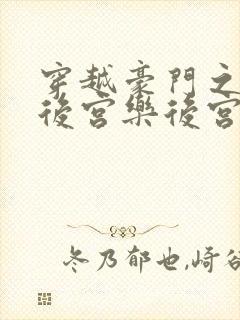 穿越豪門之
後宮樂後宮
冬乃郁也,崎谷